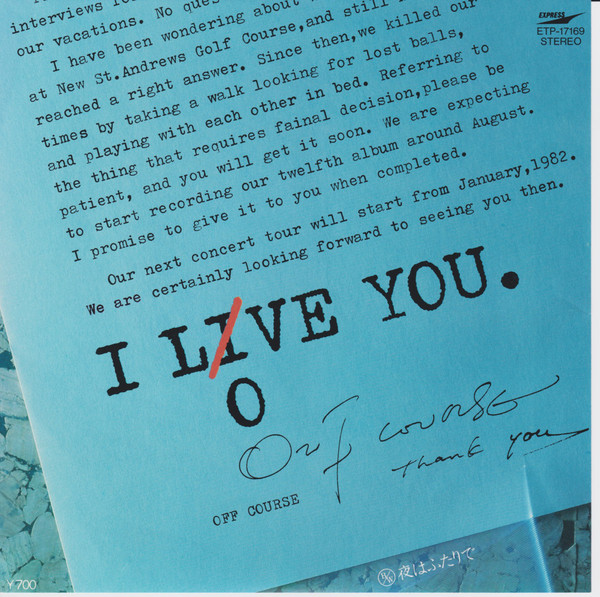 interviews
our vacations. No ques
I have been wondering about
at New St.Andrews Golf Course,and still
reached a right answer. Since then,we killed our
times by taking a walk looking for lost balls,
and playing with each other in bed. Referring to
the thing that requires fainal decision,please be
patient, and you will get it soon. We are expecting
to start recording our twelfth album around August.
I promise to give it to you when completed.
Our next concert tour will start from January,1982.
We are certainly looking forward to seeing you then.
I LIVE YOU.
O
Off course
Thank you
OFF COURSE
EXPRESS
ETP-17169
STEREO
B/S 夜はふたりで
¥700